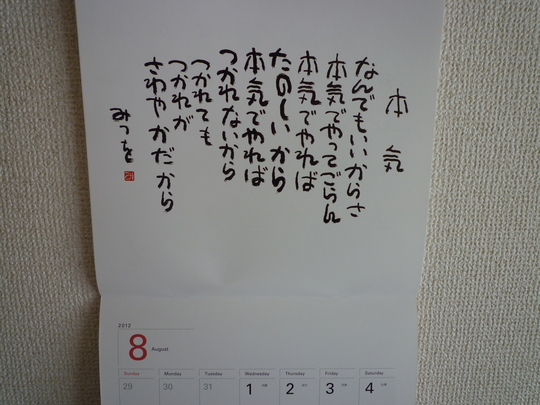 本気
なんでもいいからさ
本気でやってごらん
本気でやれば
たのしいから
本気でやれば
つかれないから
つかれても
つかれが
さわやかだから
みつを
2012
8 August
Sunday Monday Tuesday Wednesday Thursday Friday Saturday
29 30 31 1 2 3 4